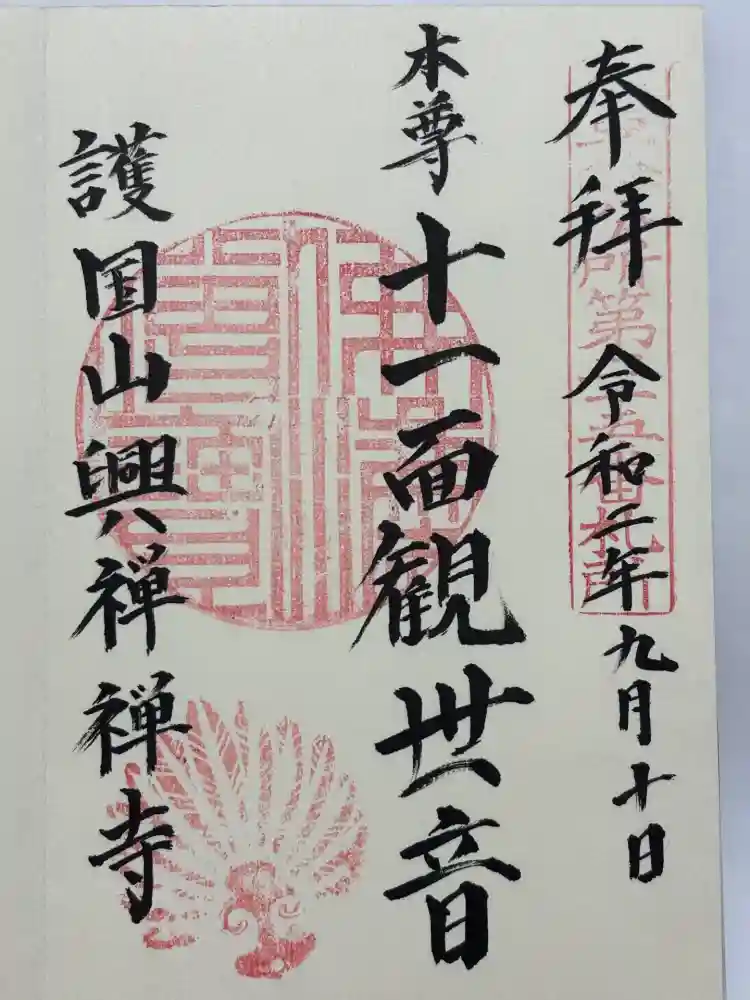 奉拝
令和二年九月十日
本尊
十一面観世音
護国山興禅禅寺
第十五番札所